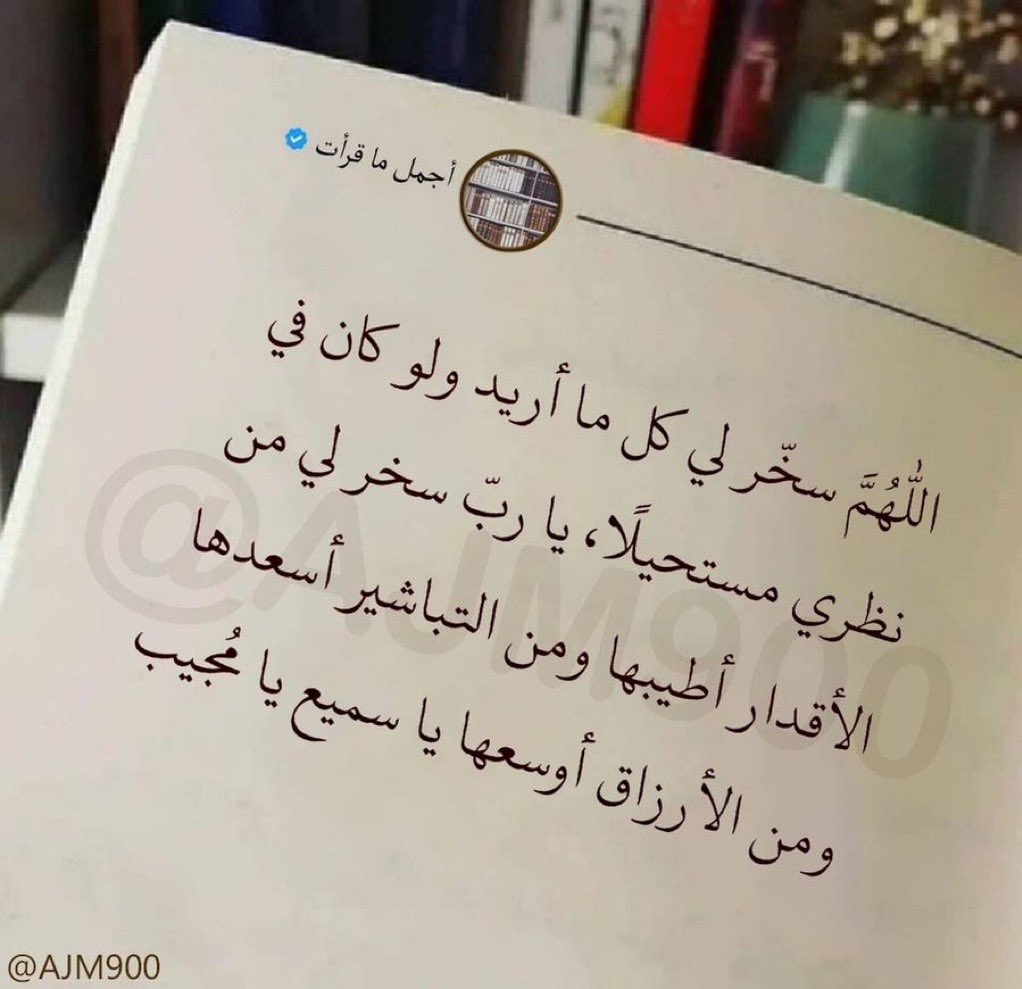 أجمل ما قرأت
اللّٰهُمَّ سخّر لي كل ما أريد ولو كان في
نظري مستحيلًا، يا ربّ سخر لي من
الأقدار أطيبها ومن التباشير أسعدها
ومن الأرزاق أوسعها يا سميع يا مُجيب
@AJM900
@AJM900